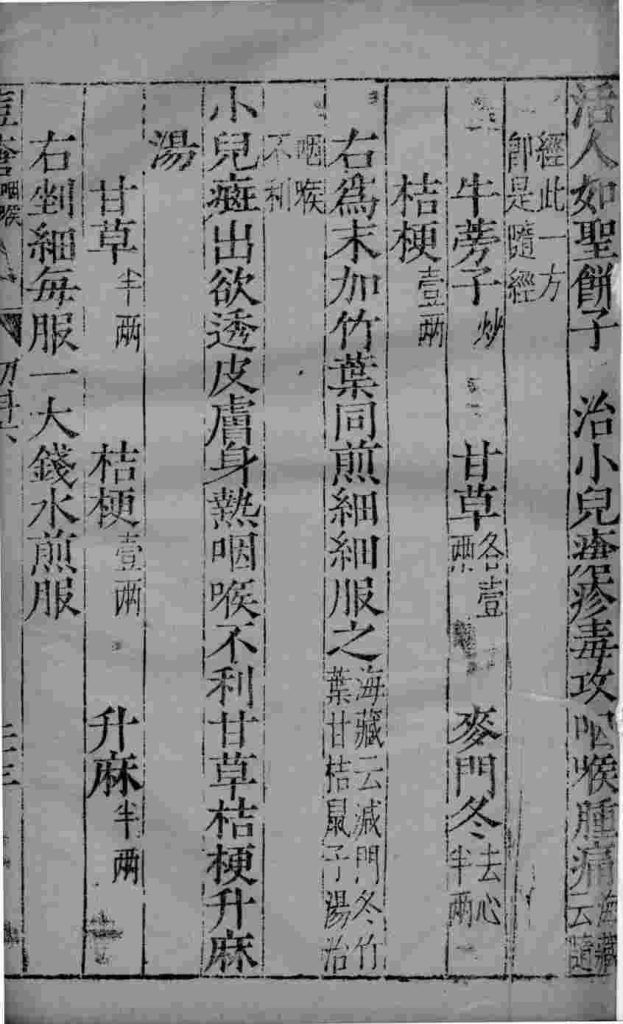 活人如聖餅子 治小兒瘡疹毒攻咽喉腫痛海藏云隨
經此一方卽是隨經
牛蒡子炒 甘草各壹兩 麥門冬去心半兩
桔梗壹兩
右爲末加竹葉同煎細細服之海藏云減門冬竹葉甘桔鼠子湯治
咽喉不利
小兒癍出欲透皮膚身熱咽喉不利甘草桔梗升麻
湯
甘草半兩 桔梗壹兩 升麻半兩
右剉細每服一大錢水煎服
咽喉